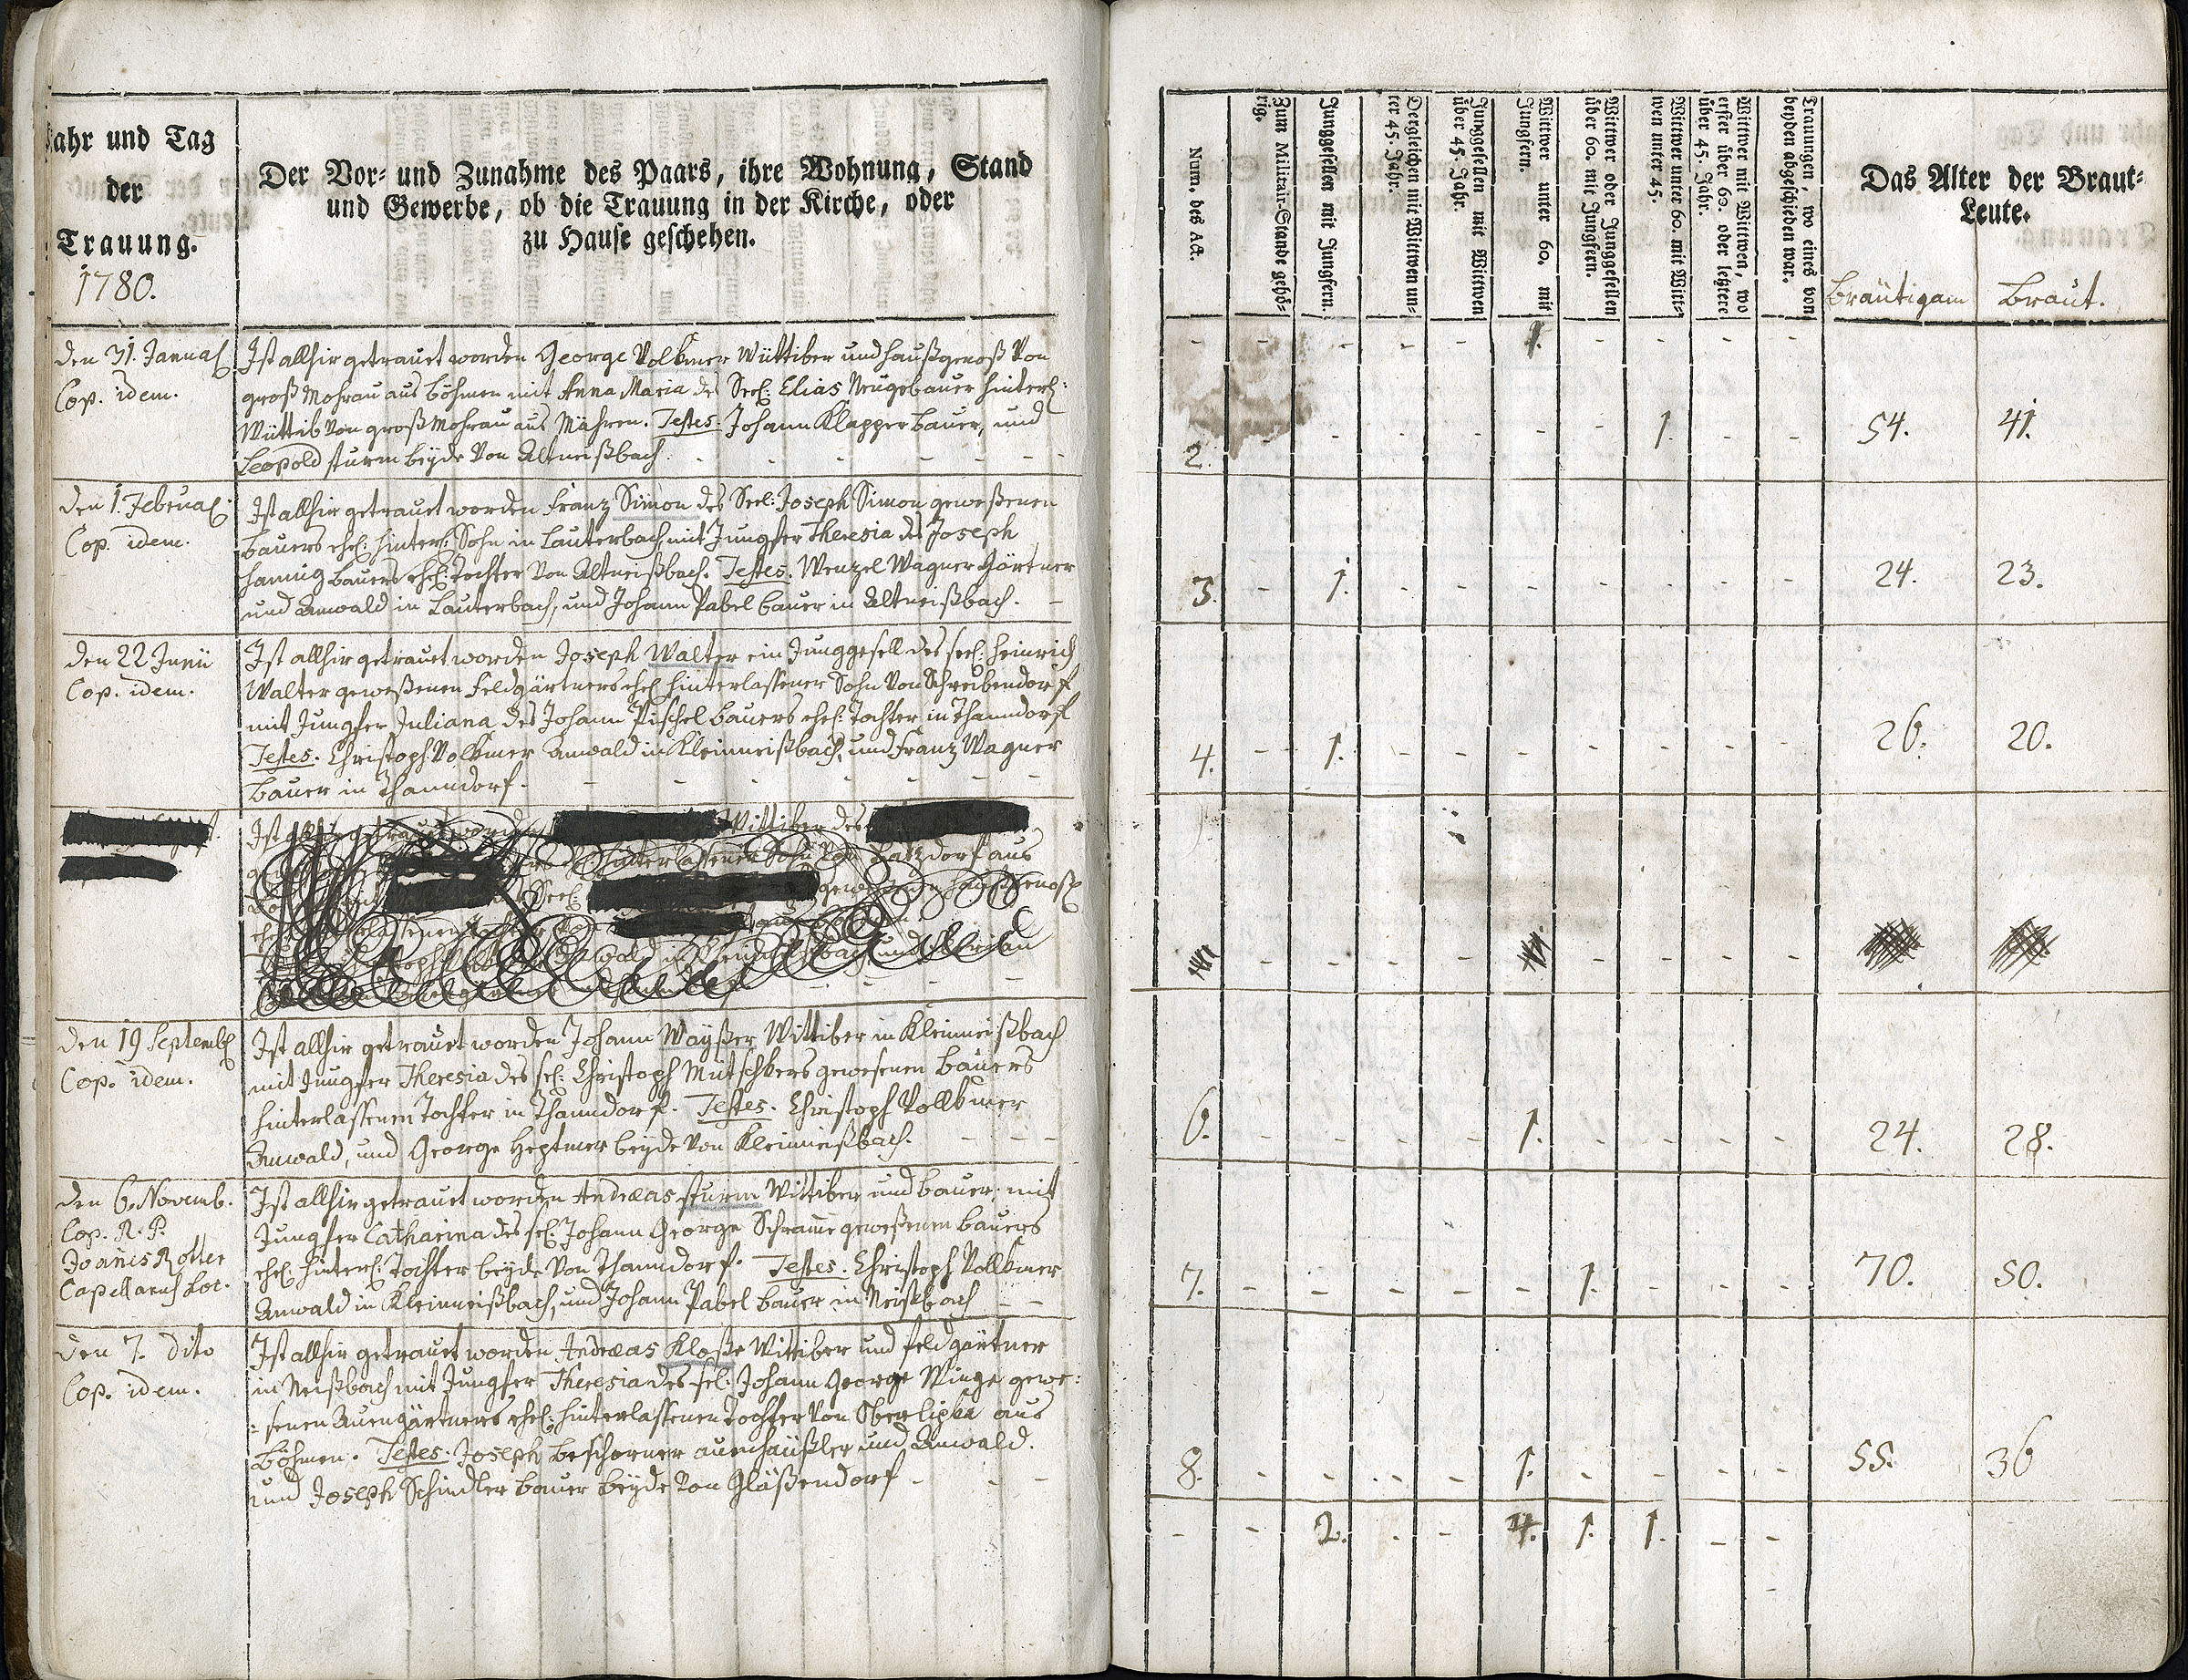 Jahr und Tag
der
Trauung.
1780.
Der Vor- und Zunahme des Paars, ihre Wohnung, Stand
und Gewerbe, ob die Trauung in der Kirche, oder
zu Hause geschehen.
den 31. Januar
Cop. idem.
Ist allhir getrauet worden George Volkmer Wüttiber und Haußgenoß von
groß Mohrau aus Böhmen mit Anna Maria des Seel: Elias Neugebauer hinterl:
Wüttib von groß Mohrau aus Mähren. Testes: Johann Klapper Bauer, und
Leopold Sturm beyde von Altneißbach.
den 1. Februar
Cop. idem.
Ist allhir getrauet worden Franz Simon des Seel: Joseph Simon geweßenen
Bauers ehel: hinterl: Sohn in Lauterbach mit Jungfer Theresia des Joseph
Hannig Bauers ehel: Tochter von Altneißbach. Testes. Wenzel Wagner Gärtner
und Anwald in Lauterbach, und Johann Pabel Bauer in Altneißbach.
den 22 Junii
Cop. idem.
Ist allhir getrauet worden Joseph Walter ein Junggesell des seel: Heinrich
Walter geweßenen Feldgärtners ehel: hinterlassener Sohn von Schreibendorf
mit Jungfer Juliana des Johann Püschel Bauers ehel: Tochter in Thanndorf
Testes. Christoph Volkmer Anwald in Kleinneißbach, und Franz Wagner
Bauer in Thanndorf.
Ist allhir getrauet worden Wittiber des
hinterlassener Sohn von Batzdorf aus
Seel: geweßenen Haußgenoß
Tochter
Anwald in Kleinneißbach und
den 19 Septemb:
Cop. idem.
Ist allhir getrauet worden Johann Wayßer Wittiber in Kleinneißbach
mit Jungfer Theresia des sel: Christoph Mutschkers gewesenen Bauers
hinterlassenen Tochter in Thanndorf. Testes. Christoph Vollkmer
Anwald, und George Heptner beyde von Kleinneißbach.
den 6. Novemb.
Cop. R. P.
Joanes Rotter
Capellanus loc.
Ist allhir getrauet worden Andreas Sturm Wittiber und Bauer, mit
Jungfer Catharina des sel: Johann George Schramme geweßenen Bauers
ehel: hinterl: Tochter beyde von Thanndorf. Testes. Christoph Vollkmer
Anwald in Kleinneißbach, und Johann Pabel Bauer in Neißbach
den 7. dito
Cop. idem.
Ist allhir getrauet worden Andreas Kloße Wittiber und Feldgärtner
in Neißbach mit Jungfer Theresia des sel: Johann George Winge gewe:
:senen Auengärtners ehel: hinterlassenen Tochter von Oberlipka aus
Böhmen. Testes. Joseph Beschorner auenhäußler und Anwald.
und Joseph Schindler Bauer beyde von Gläßendorf
Num. des Act.
Zum Militair-Stande gehö-
rig.
Junggesellen mit Jungfern.
Dergleichen mit Wittwen un-
ter 45. Jahr.
Junggesellen mit Wittwen
über 45. Jahr.
Wittwer unter 60. mit
Jungfern.
Wittwer oder Junggesellen
über 60. mit Jungfern.
Wittwer unter 60. mit Witt-
wen unter 45.
Wittwer mit Wittwen, wo
erster über 60. oder letztere
über 45. Jahr.
Trauungen, wo eines von
beyden abgeschieden war.
Das Alter der Braut-
Leute.
Bräutigam Braut.
- - - - - 1. - - - -
2. - - - - - - 1. - - 54. 41.
3. - 1. - - - - - - - 24. 23.
4. - 1. - - - - - - - 26. 20.
- - - - - - - -
6. - - - - 1. - - - - 24. 28.
7. - - - - - 1. - - - 70. 50.
8. - - - - 1. - - - - 55. 36
- - 2. - - 4. 1. 1. - -